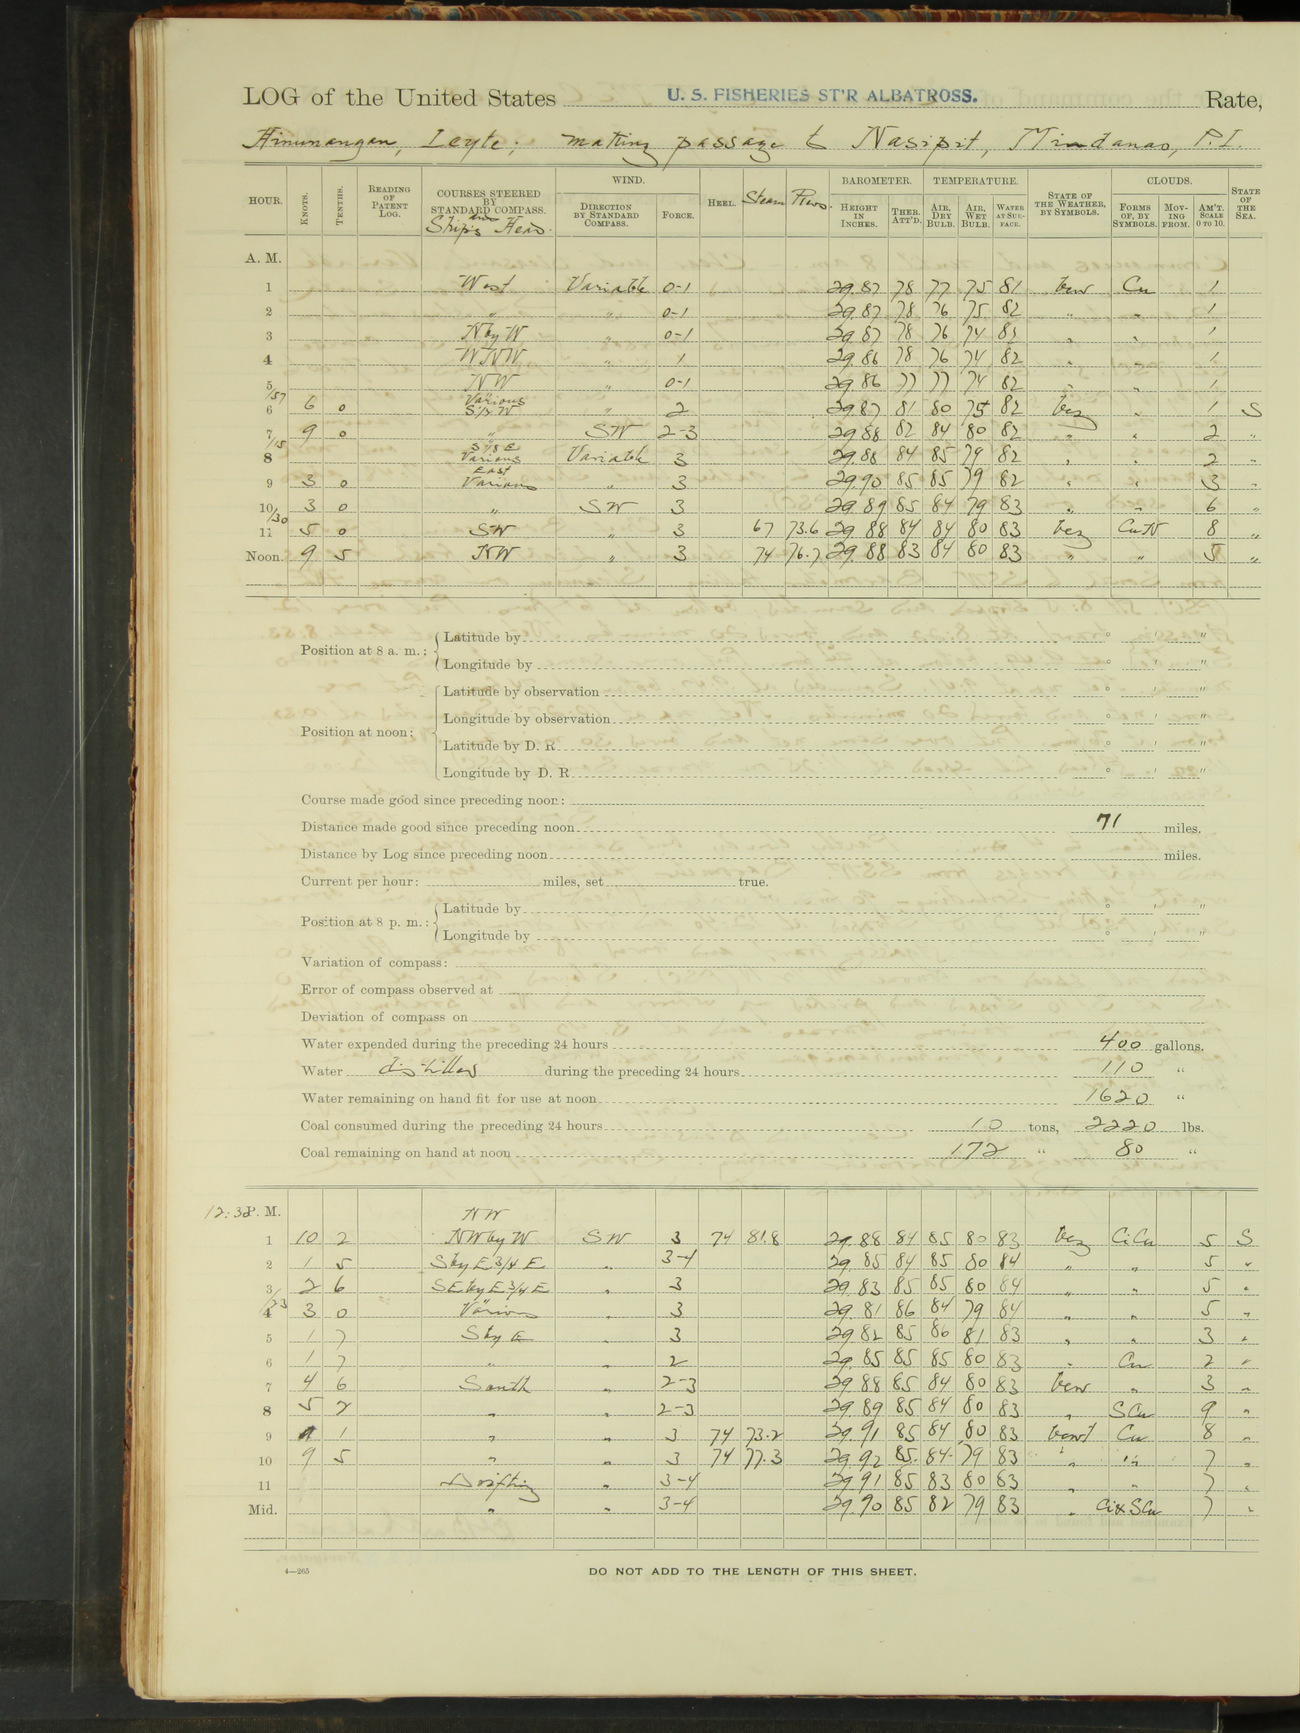 LOG of the United States U. S. FISHERIES ST'R ALBATROSS. Rate,
Hinunangan, Leyte; making passage to Nasipit, Mindanao, P.I.
HOUR. KNOTS. TENTHS. READING OF PATENT LOG. COURSES STEERED BY STANDARD COMPASS. and Ship's Head. WIND. DIRECTION BY STANDARD COMPASS. FORCE. HEEL. Steam Revs. BAROMETER. HEIGHT IN INCHES. THER. ATT'D. TEMPERATURE. AIR, DRY BULB. AIR, WET BULB. WATER AT SURFACE. STATE OF THE WEATHER, BY SYMBOLS. CLOUDS. FORMS OF, BY SYMBOLS. MOVING FROM. AM'T. SCALE 0 TO 10. STATE OF THE SEA.
A. M.
1 West Variable 0-1 29.87 78 77 75 81 bcw Cu 1
2 " " 0-1 29.87 78 76 75 82 " " 1
3 N by W " 0-1 29.87 78 76 74 83 " " 1
4 WNW " 1 29.86 78 76 74 82 " " 1
5 NW " 0-1 29.86 77 77 74 82 " " 1
/57 Various
6 6 0 S½W " 2 29.87 81 80 75 82 bcz " 1 S
7 9 0 " SW 2-3 29.88 82 84 80 82 " " 2 "
/15 S⅛E
8 Various Variable 3 29.88 84 85 79 82 " " 2 "
East
9 3 0 Various " 3 29.90 85 85 79 82 " " 3 "
10 3 0 " SW 3 29.89 85 84 79 83 " " 6 "
/30
11 5 0 SW " 3 67 73.6 29.88 84 84 80 83 bcz CuN 8 "
Noon. 9 5 NW " 3 74 76.7 29.88 83 84 80 83 " " 5 "
Position at 8 a. m.: Latitude by ° ' "
Longitude by ° ' "
Position at noon: Latitude by observation ° ' "
Longitude by observation ° ' "
Latitude by D. R. ° ' "
Longitude by D. R. ° ' "
Course made good since preceding noon:
Distance made good since preceding noon 71 miles.
Distance by Log since preceding noon miles.
Current per hour: miles, set true.
Position at 8 p. m.: Latitude by ° ' "
Longitude by ° ' "
Variation of compass:
Error of compass observed at
Deviation of compass on
Water expended during the preceding 24 hours 400 gallons.
Water distilled during the preceding 24 hours 110 "
Water remaining on hand fit for use at noon 1620 "
Coal consumed during the preceding 24 hours 10 tons, 2220 lbs.
Coal remaining on hand at noon 172 " 80 "
12:32 P. M. NW
1 10 2 NW by W SW 3 74 81.8 29.88 84 85 80 83 bcz CiCu 5 S
2 1 5 S by E 3/4 E " 3-4 29.85 84 85 80 84 " " 5 "
3 2 6 SE by E 3/4 E " 3 29.83 85 85 80 84 " " 5 "
/23
4 3 0 Various " 3 29.81 86 84 79 84 " " 5 "
5 1 7 S by E " 3 29.82 85 86 81 83 " " 3 "
6 1 7 " " 2 29.85 85 85 80 83 " Cu 2 "
7 4 6 South " 2-3 29.88 85 84 80 83 bcw " 3 "
8 5 2 " " 2-3 29.89 85 84 80 83 " SCu 9 "
9 9 1 " " 3 74 73.2 29.91 85 84 80 83 Cu 8 "
10 9 5 " " 3 74 77.3 29.92 85 84 79 83 " " 7 "
11 Drifting " 3-4 29.91 85 83 80 83 " " 7 "
Mid. " " 3-4 29.90 85 82 79 83 " Ci & SCu 7 "
4—265
DO NOT ADD TO THE LENGTH OF THIS SHEET.